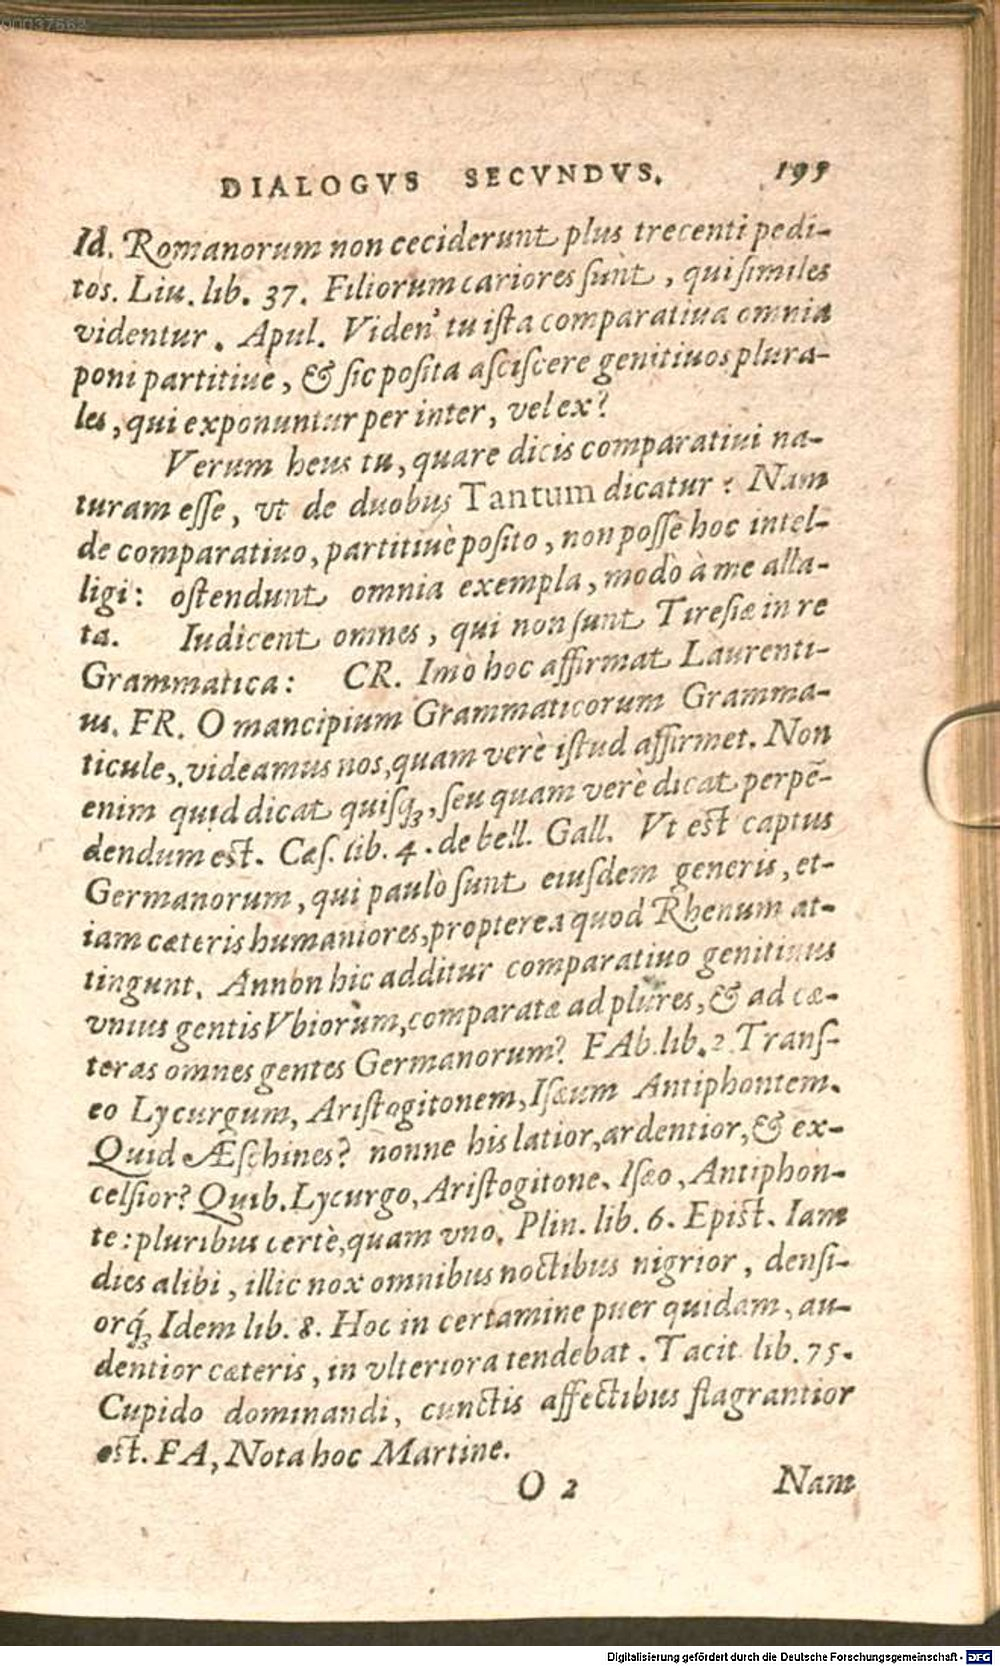 00037662
DIALOGVS SECVNDVS. 195
Id. Romanorum non ceciderunt plus trecenti pedi-
tos. Liu. lib. 37. Filiorum cariores sunt, qui similes
videntur. Apul. Viden' tu ista comparatiua omnia
poni partitiue, & sic posita asciscere genitiuos plura-
les, qui exponuntur per inter, vel ex?
Verum heus tu, quare dicis comparatiui na-
turam esse, vt de duobus Tantum dicatur: Nam
de comparatiuo, partitiuè posito, non posse hoc intel-
ligi: ostendunt omnia exempla, modò à me alla-
ta. Iudicent omnes, qui non sunt Tiresiæ in re
Grammatica: CR. Imò hoc affirmat Laurenti-
us. FR. O mancipium Grammaticorum Gramma-
ticule, videamus nos, quam verè istud affirmet. Non
enim quid dicat quisqꝫ, seu quam verè dicat perpē-
dendum est. Cæs. lib. 4. de bell. Gall. Vt est captus
Germanorum, qui paulò sunt eiusdem generis, et-
iam cæteris humaniores, propterea quod Rhenum at-
tingunt. Annon hic additur comparatiuo genitiuus
vnius gentis Vbiorum, comparatæ ad plures, & ad cæ-
teras omnes gentes Germanorum? FAb. lib. 2. Trans-
eo Lycurgum, Aristogitonem, Isæum Antiphontem.
Quid Æschines? nonne his latior, ardentior, & ex-
celsior? Quib. Lycurgo, Aristogitone, Isæo, Antiphon-
te: pluribus certè, quam vno. Plin. lib. 6. Epist. Iam
dies alibi, illic nox omnibus noctibus nigrior, densi-
orqꝫ́ Idem lib. 8. Hoc in certamine puer quidam, au-
dentior cæteris, in vlteriora tendebat. Tacit lib. 75.
Cupido dominandi, cunctis affectibus flagrantior
est. FA, Nota hoc Martine.
O 2 Nam
Digitalisierung gefördert durch die Deutsche Forschungsgemeinschaft - DFG